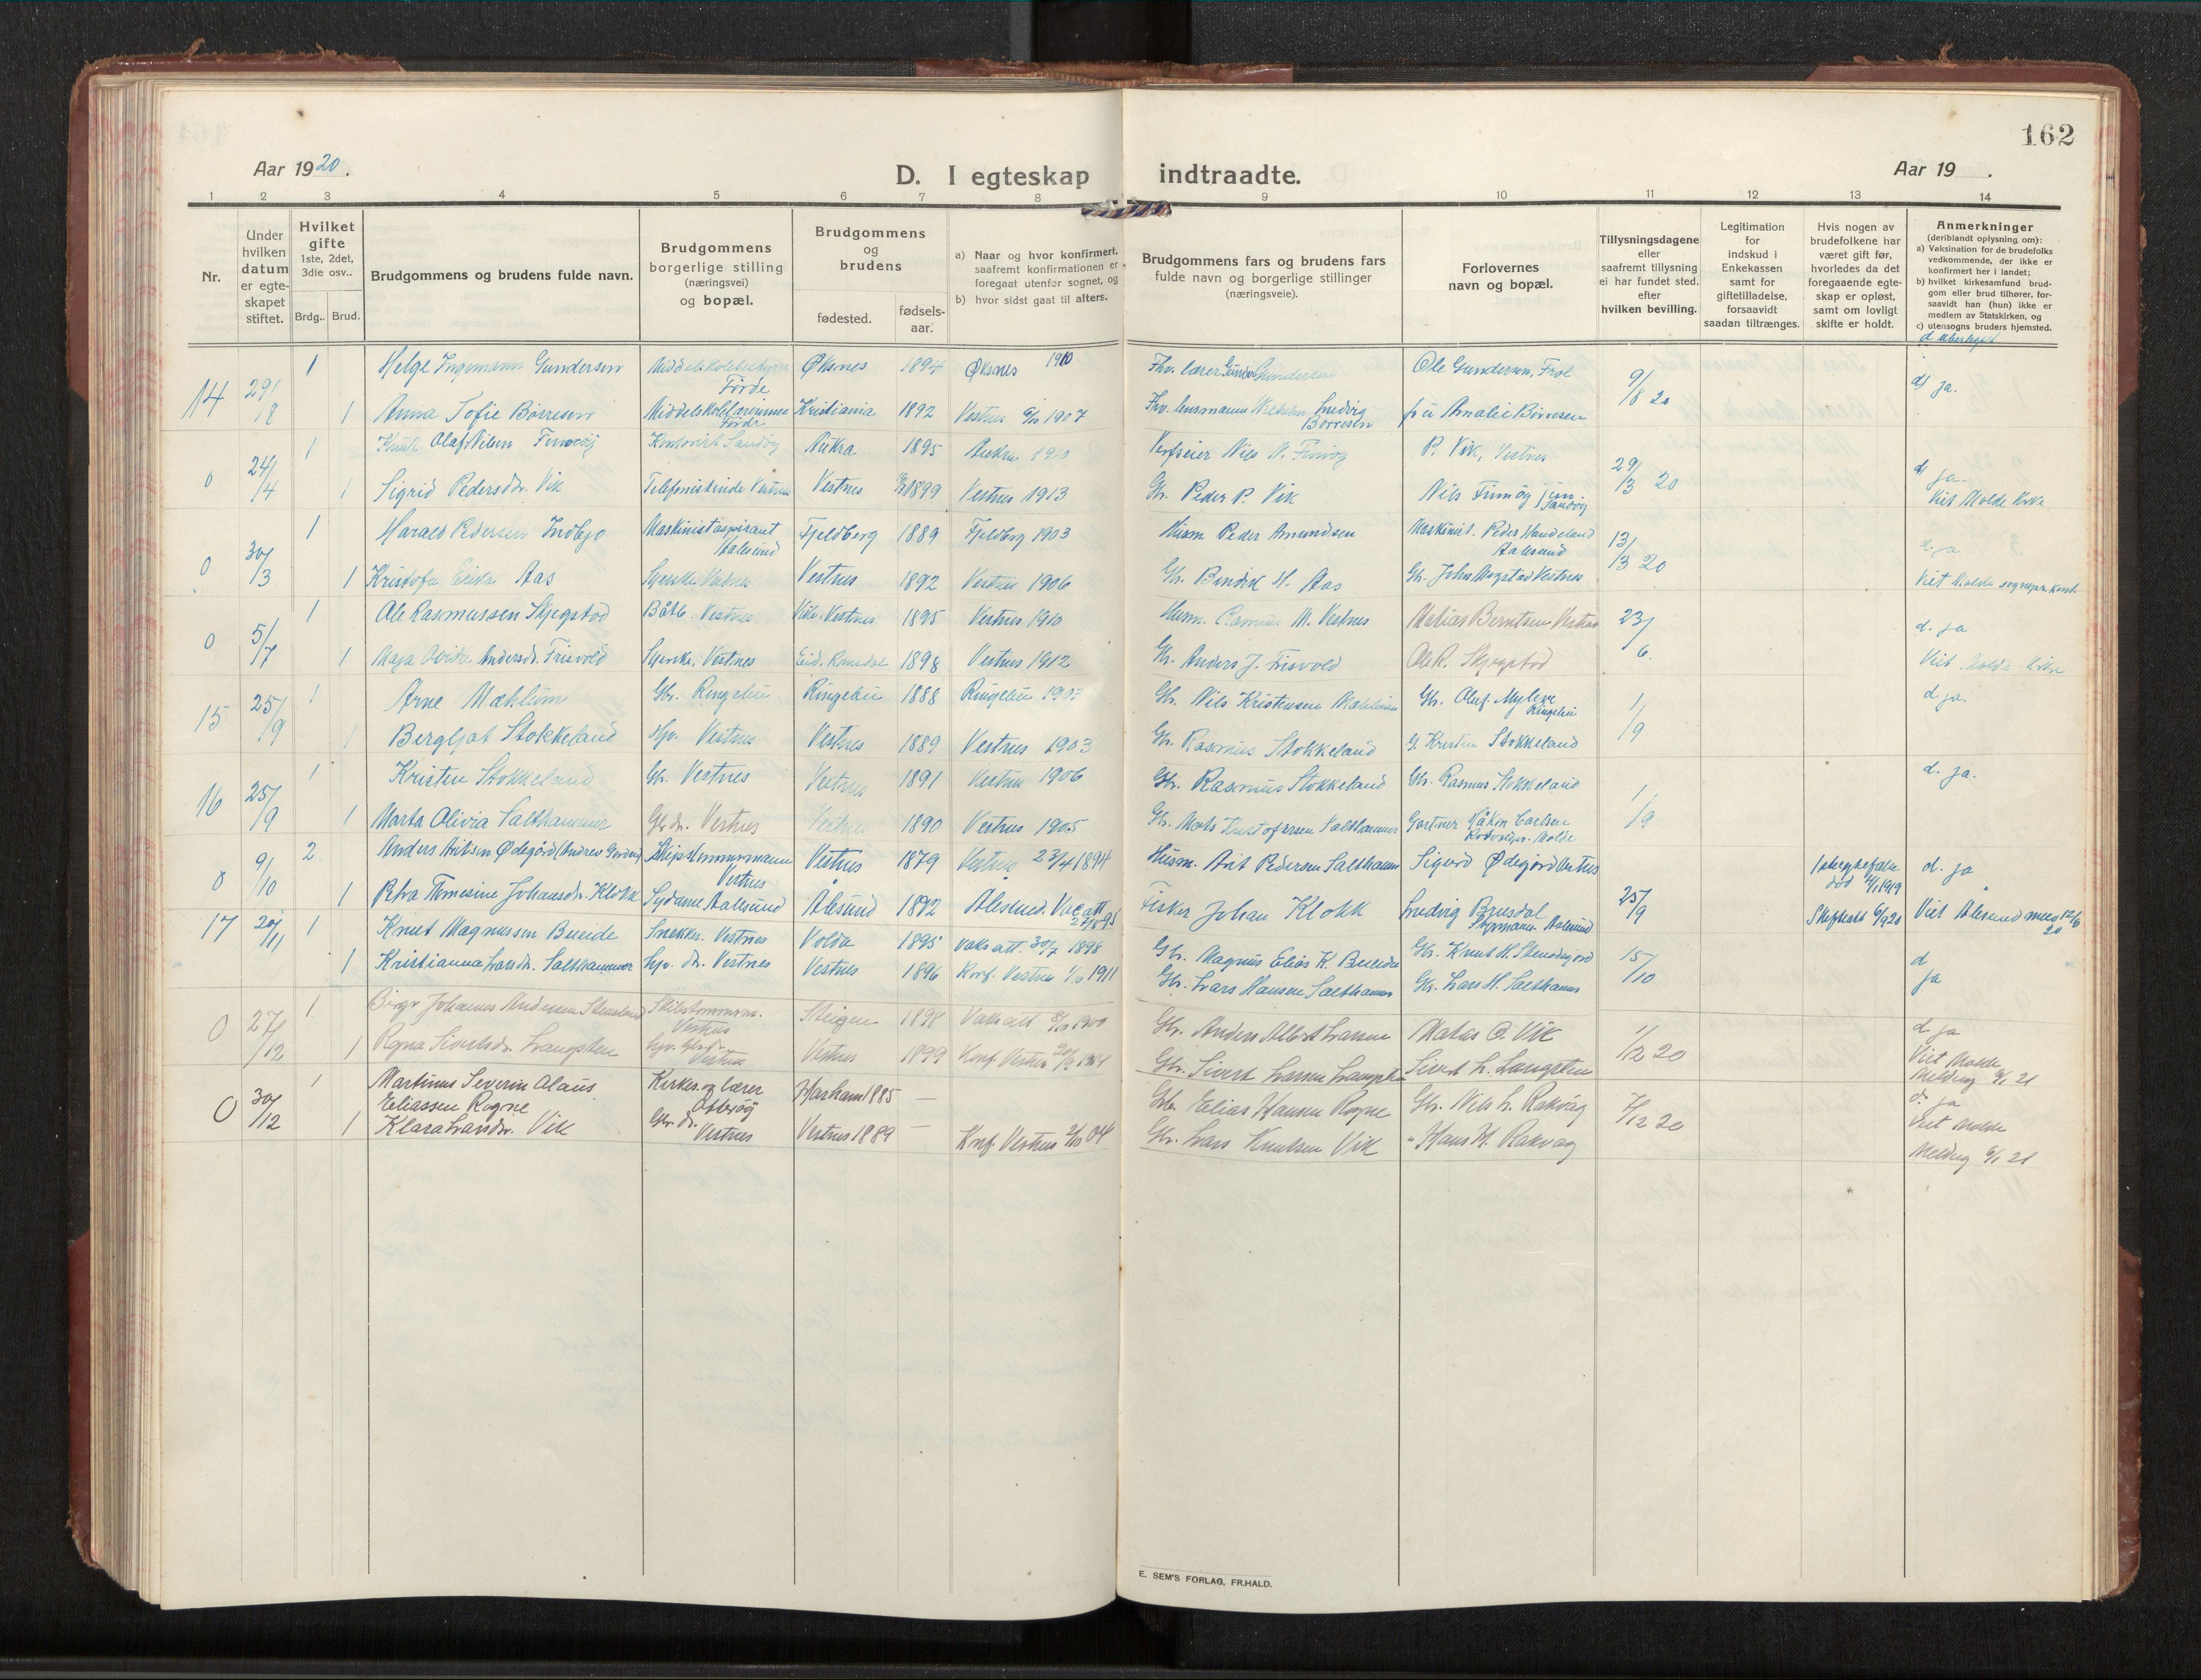 162
Aar 1920.
D. I egteskap indtraadte.
Aar 19 .
1 2 3 4 5 6 7 8 9 10 11 12 13 14
Nr.
Under hvilken datum er egteskapet stiftet.
Hvilket gifte 1ste, 2det, 3die osv..
Brdg.. Brud.
Brudgommens og brudens fulde navn.
Brudgommens borgerlige stilling (næringsvei) og bopæl.
Brudgommens og brudens
fødested.
fødselsaar.
a) Naar og hvor konfirmert, saafremt konfirmationen er foregaat utenfor sognet, og
b) hvor sidst gaat til alters.
Brudgommens fars og brudens fars fulde navn og borgerlige stillinger (næringsveie).
Forlovernes navn og bopæl.
Tillysningsdagene eller saafremt tillysning ei har fundet sted, efter hvilken bevilling.
Legitimation for indskud i Enkekassen samt for giftetilladelse, forsaavidt saadan tiltrænges.
Hvis nogen av brudefolkene har været gift før, hvorledes da det foregaaende egteskap er opløst, samt om lovligt skifte er holdt.
Anmerkninger (deriblandt oplysning om):
a) Vaksination for de brudefolks vedkommende, der ikke er konfirmert her i landet;
b) hvilket kirkesamfund brudgom eller brud tilhører, forsaavidt han (hun) ikke er medlem av Statskirken, og
c) utensogns bruders hjemsted.
14 29/8 1 Helge Ingemann Gundersen Førde Øksnes 1894 Øksnes 1910 Fhv. lærer Gunder Gundersen Ole Gundersen, 9/8 20 d) ja.
1 Anna Sofie Børresen Middelskolelærerinne Førde Kristiania 1892 Vestnes 1907 Fhv. lensmann Wilhelm Ludvig Børresen frú Amalie Børresen
0 24/4 1 Knut Olaf Nilsen Finnøy Kontorist Sandøy Aukra 1895 Aukra 1910 Nils N. Finnøy P. Vik, Vestnes 29/3 20 d) ja
1 Sigrid Pedersdr. Vik Telefonistinde Vestnes Vestnes 1899 Vestnes 1913 Gbr. Peder P. Vik Nils Finnøy jun. Sandøy Viet Molde Kirke
0 30/3 1 Harald Pedersen Maskinistaspirant Aalesund Fjeldberg 1889 Fjeldberg 1903 Husm Peder Amundsen Maskinist. Peder Aalesund 13/3 20 d. ja
1 Kristofa Aas Syerske Vestnes Vestnes 1892 Vestnes 1906 Gbr. Bendik H. Aas Gbr. John Vestnes Viet Molde sognepr. kont
0 5/7 1 Ole Rasmussen Skjegstad Båtb. Vestnes Vestnes 1895 Vestnes 1910 Husm. Rasmus M. Vestnes Matias Berntsen Vestnes 23/6. d. ja
1 Andersdr. Frisvold Syerske. Vestnes Eid. Romsdal 1898 Vestnes 1912 Gbr. Anders J. Frisvold Ole R. Skjegstad Viet Molde Kirke
15 25/9 1 Arne Mæhlum Gbr. Ringebu Ringebu 1888 Ringebu 1903 Gbr. Nils Kristensen Mæhlum Gbr. Oluf Ringebu 1/9 d. ja.
1 Bergljot Stokkeland Hjv. Vestnes Vestnes 1889 Vestnes 1903 Gbr. Rasmus Stokkeland G. Kristen Stokkeland
16 25/9 1 Kristen Stokkeland Gbr. Vestnes Vestnes 1891 Vestnes 1906 Gbr. Rasmus Stokkeland Gbr. Rasmus Stokkeland 1/9 d. ja.
1 Marta Olivia Salthammer Gbr.dr. Vestnes Vestnes 1890 Vestnes 1905 Gbr. Mats Kristofersen Salthammer Gartner Håkon Carlsen Molde
0 9/10 2 Anders Aritsen Ødegård Skipstømmermann Vestnes Vestnes 1879 Vestnes 23/4 1894 Husm. Arit Pedersen Salthammer Sigurd Ødegård Vestnes 25/9 død 1919 d. ja
1 Petra Thomasine Johansdr. Klokk Sydame Aalesund Ålesund 1892 Ålesund. Vac att Fisker Johan Klokk Ludvig Brusdal Aalesund Skifteatt 6/9 20 Viet Ålesund
17 20/11 1 Knut Magnussen Bueide Snekker. Vestnes Volda 1895 vaks att. 30/7 1898 Gbr. Magnus Elias K. Bueide Gbr. Knut H. 15/10 d
1 Kristianna Larsdr. Salthammer hjv. dr. Vestnes Vestnes 1896 Konf. Vestnes 1911 Gbr. Lars Hansen Salthammer Gbr. Lars H. Salthammer ja
0 27/12 1 Birger Johannes Andersen Vestnes Steigen 1898 Vaks att 1900 Gbr. Anders Albert Larsen Matias O. Vik 1/12 20 d. ja
1 Ragna Sivertsdr. Langsten Vestnes Vestnes 1899 Konf Vestnes Gbr. Sivert Larsen Langsten Sivert L. Langsten Viet Molde Melding 6/1 21
0 30/12 1 Martinus Severin Olaus Eliassen Rogne Kirkes. og lærer Otterøy Harham 1885 — Gbr. Elias Hansen Rogne Gbr. Nils L. Rakvåg 7/12 20 d. ja
1 Klara Larsdr. Vik Gbr. dr. Vestnes Vestnes 1889 — Knf. Vestnes 2/10 04 Gbr. Lars Knutsen Vik " Hans H. Rakvåg Viet Molde Melding 6/1 21
E. SEM'S FORLAG, FR.HALD.